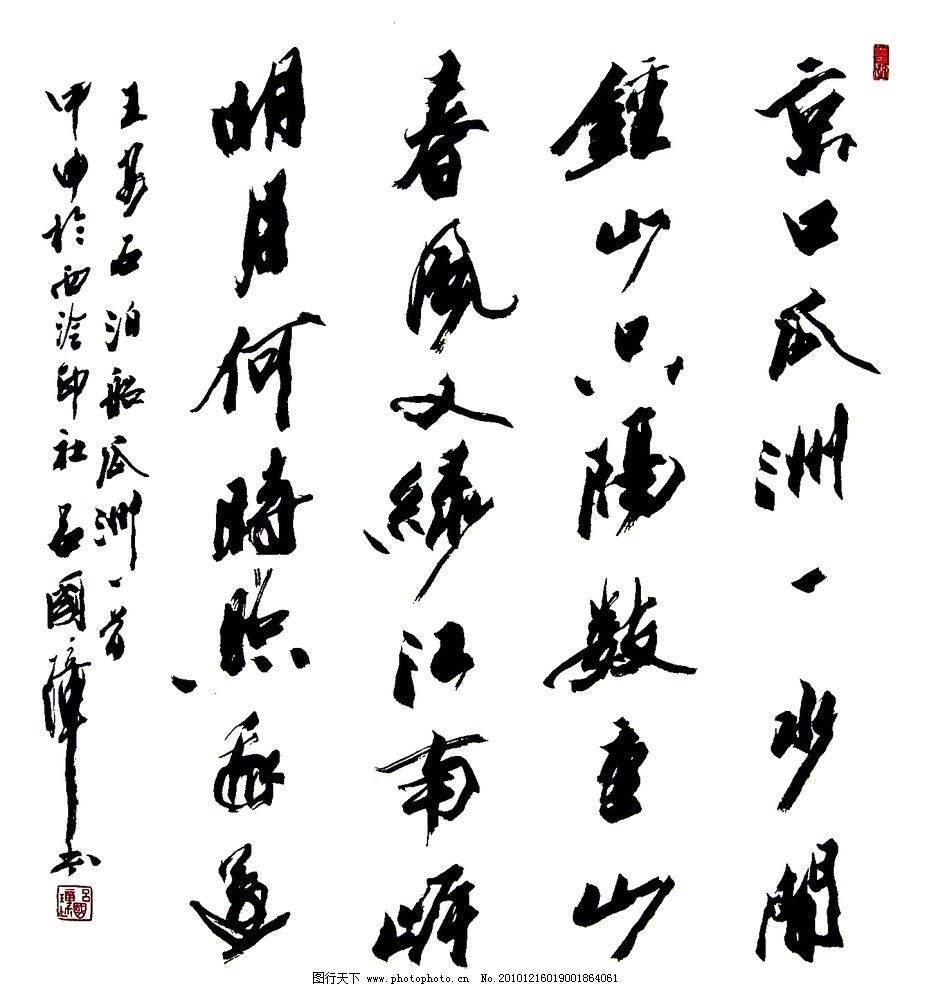 京口瓜洲一水間
鍾山只隔數重山
春風又綠江南岸
明月何時照我還
王安石泊船瓜洲一首
甲申於西泠印社呂國璋書
图行天下 www.photophoto.cn No.20101216019001864061